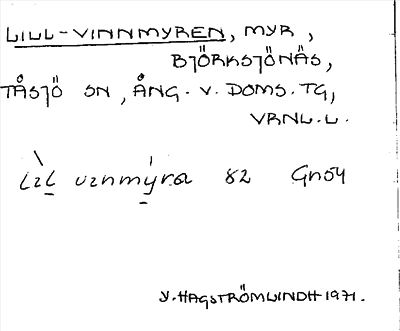 LILL-VINNMYREN, MYR,
BJÖRKSJÖNÄS,
TÅSJÖ SN, ÅNG. V. DOMS. TG,
VRNL.L.
lɩl vɩnmýra 82 Gnöy
Y. HAGSTRÖMLINDH 1971.